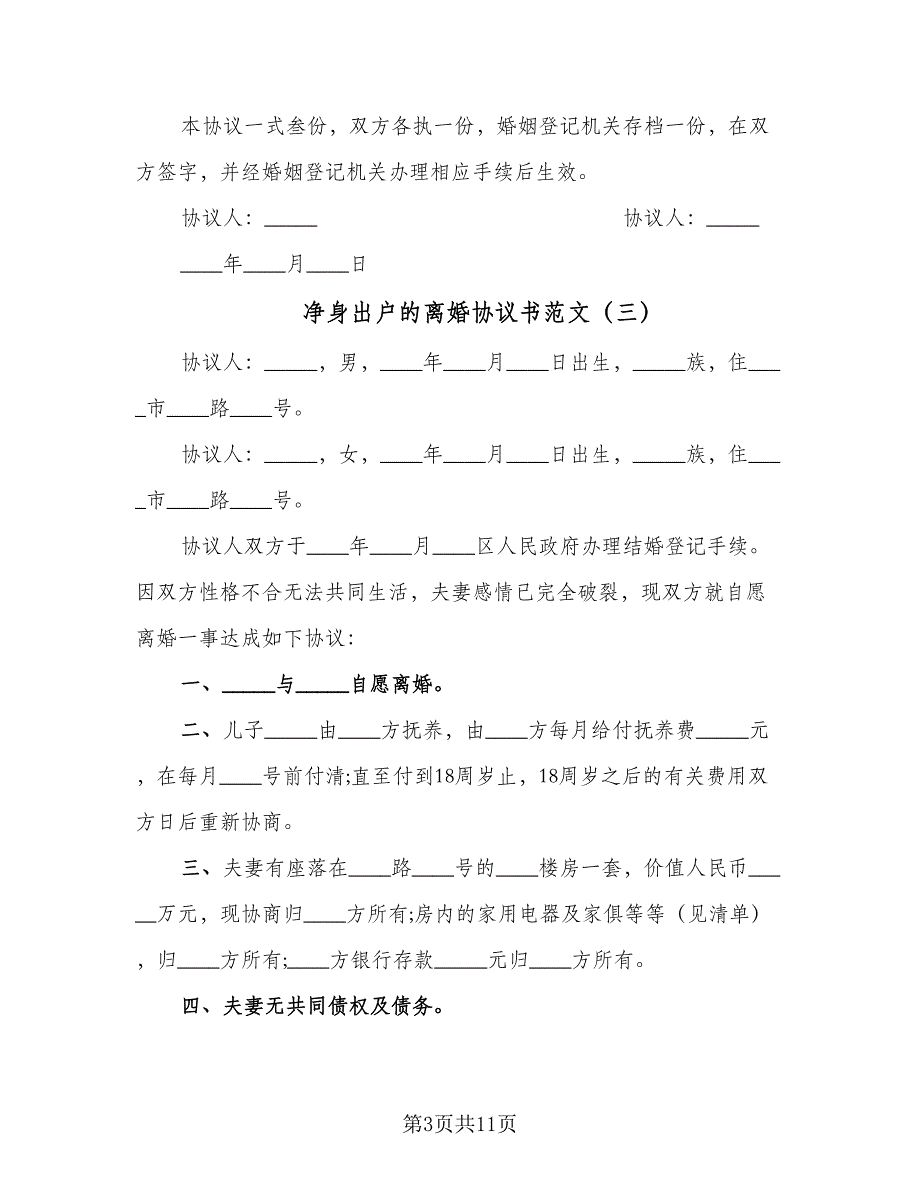 本协议一式叁份，双方各执一份，婚姻登记机关存档一份，在双
方签字，并经婚姻登记机关办理相应手续后生效。
协议人：_____ 协议人：_____
____年____月____日
净身出户的离婚协议书范文（三）
协议人：_____，男，____年____月____日出生，_____族，住___
_市____路____号。
协议人：_____，女，____年____月____日出生，_____族，住___
_市____路____号。
协议人双方于____年____月____区人民政府办理结婚登记手续。
因双方性格不合无法共同生活，夫妻感情已完全破裂，现双方就自愿
离婚一事达成如下协议：
一、_____与_____自愿离婚。
二、儿子_____由____方抚养，由____方每月给付抚养费_____元
，在每月____号前付清;直至付到18周岁止，18周岁之后的有关费用双
方日后重新协商。
三、夫妻有座落在____路____号的____楼房一套，价值人民币___
__万元，现协商归____方所有;房内的家用电器及家俱等等（见清单）
，归____方所有;____方银行存款_____元归____方所有。
四、夫妻无共同债权及债务。
第3页共11页